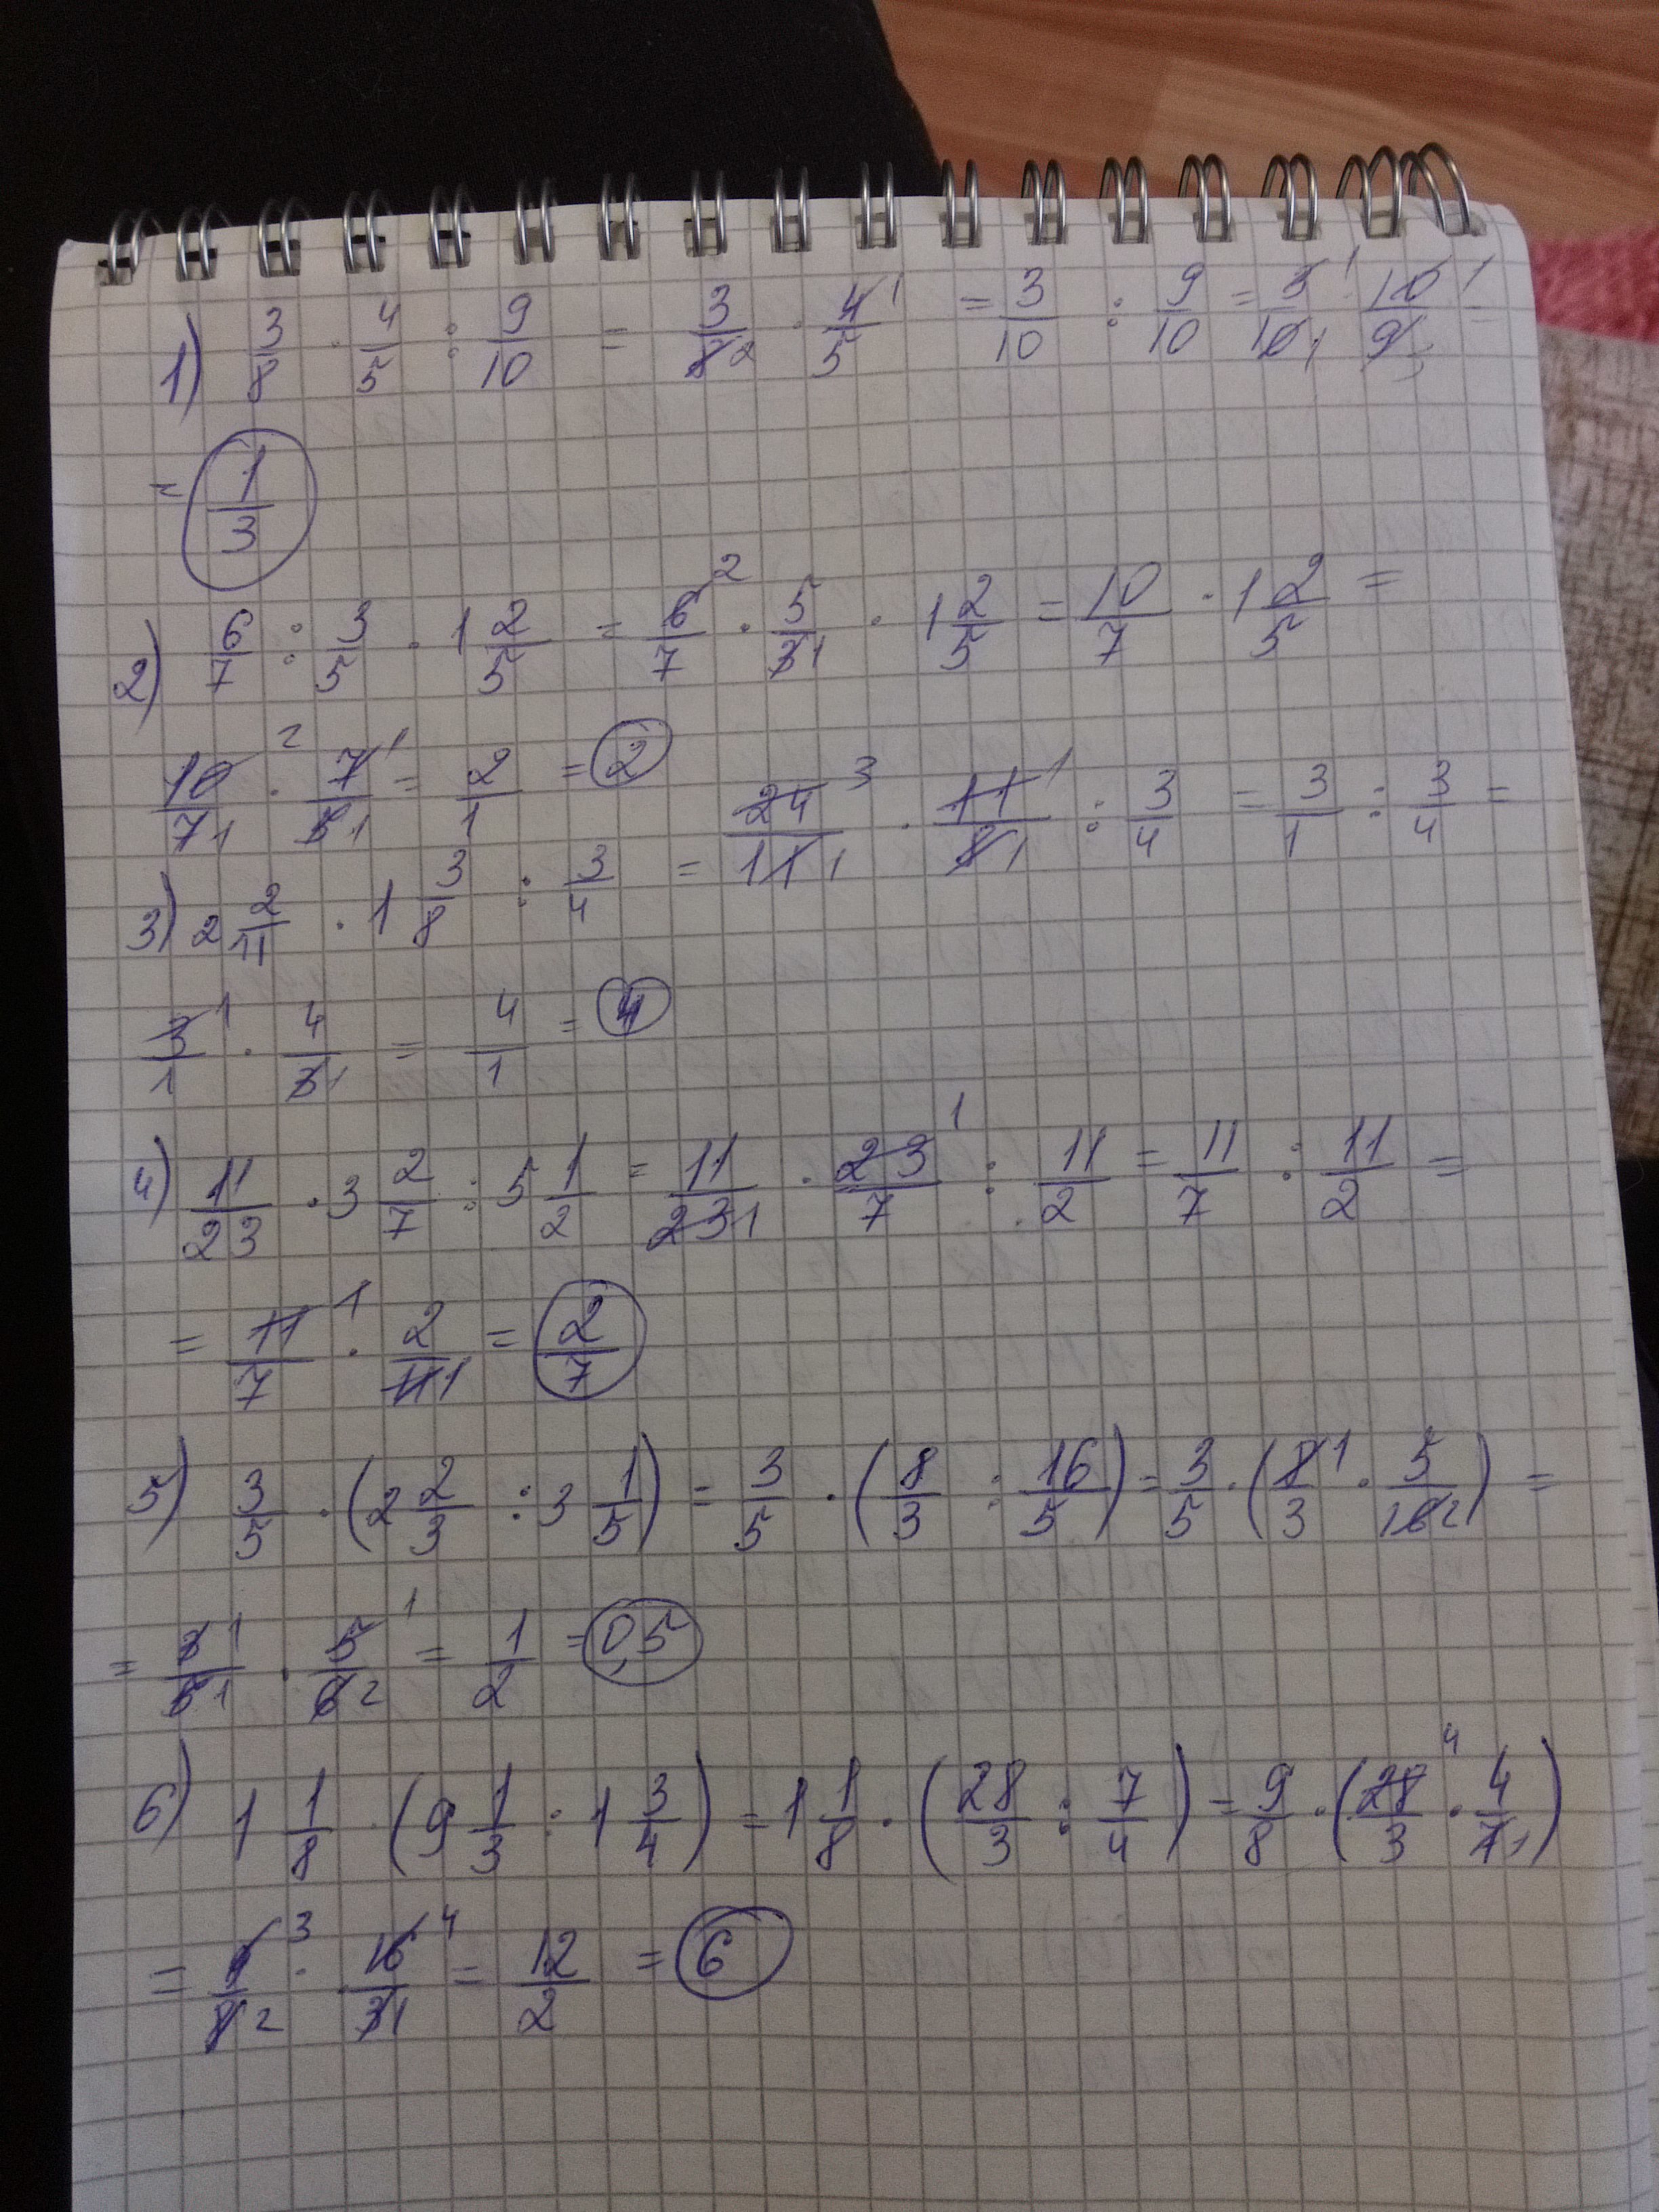 1) 3/8 · 4/5 : 9/10 = 3/8 2 · 4/5 1 = 3/10 : 9/10 = 3/10 1 1 · 10/9 1 3 =
= 1/3
2) 6/7 : 3/5 · 1 2/5 = 6/7 2 · 5/3 1 · 1 2/5 = 10/7 · 1 2/5 =
10/7 2 1 · 7/5 1 1 = 2/1 = 2
3) 2 2/11 · 1 3/8 : 3/4 = 24/11 3 1 · 11/8 1 1 : 3/4 = 3/1 : 3/4 =
3/1 1 · 4/3 1 = 4/1 = 4
4) 11/23 · 3 2/7 : 5 1/2 = 11/23 1 · 23/7 1 : 11/2 = 11/7 : 11/2 =
= 11/7 1 · 2/11 1 = 2/7
5) 3/5 · (2 2/3 : 3 1/5) = 3/5 · (8/3 : 16/5) = 3/5 · (8/3 1 · 5/16 2) =
= 3/5 1 1 · 5/6 1 2 = 1/2 = 0,5
6) 1 1/8 · (9 1/3 : 1 3/4) = 1 1/8 · (28/3 : 7/4) = 9/8 · (28/3 4 · 4/7 1)
= 9/8 3 2 · 16/3 4 1 = 12/2 = 6